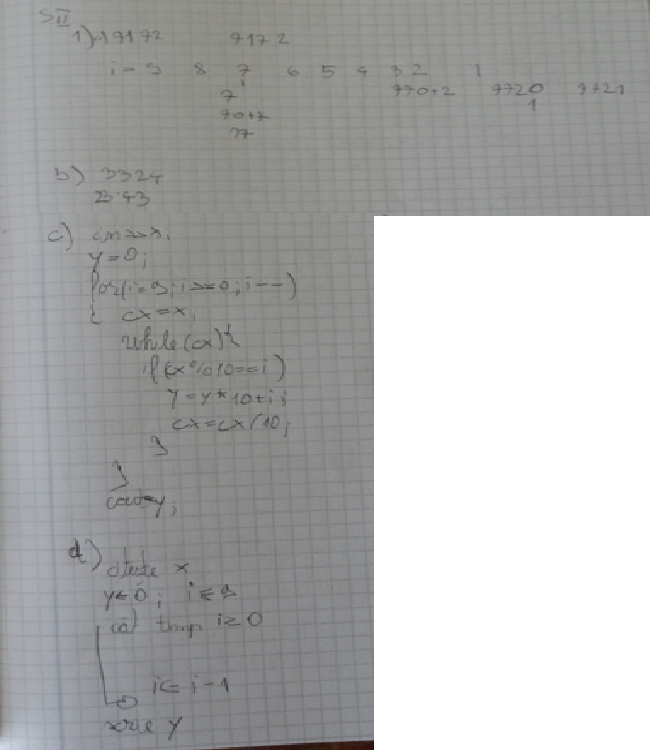 SII
1) 19172 9172
i = 9 8 7 6 5 4 3 2 1
7 770+2 7720 7721
70+7 1
77
b) 3324
c) cin>>x;
y=0;
for(i=9;i>=0;i--)
{ cx=x;
while(cx){
if(cx%10==i)
y=y*10+i;
cx=cx/10;
}
}
cout<<y;
d) citește x
y←0; i←9
cât timp i≥0
i← i-1
scrie y